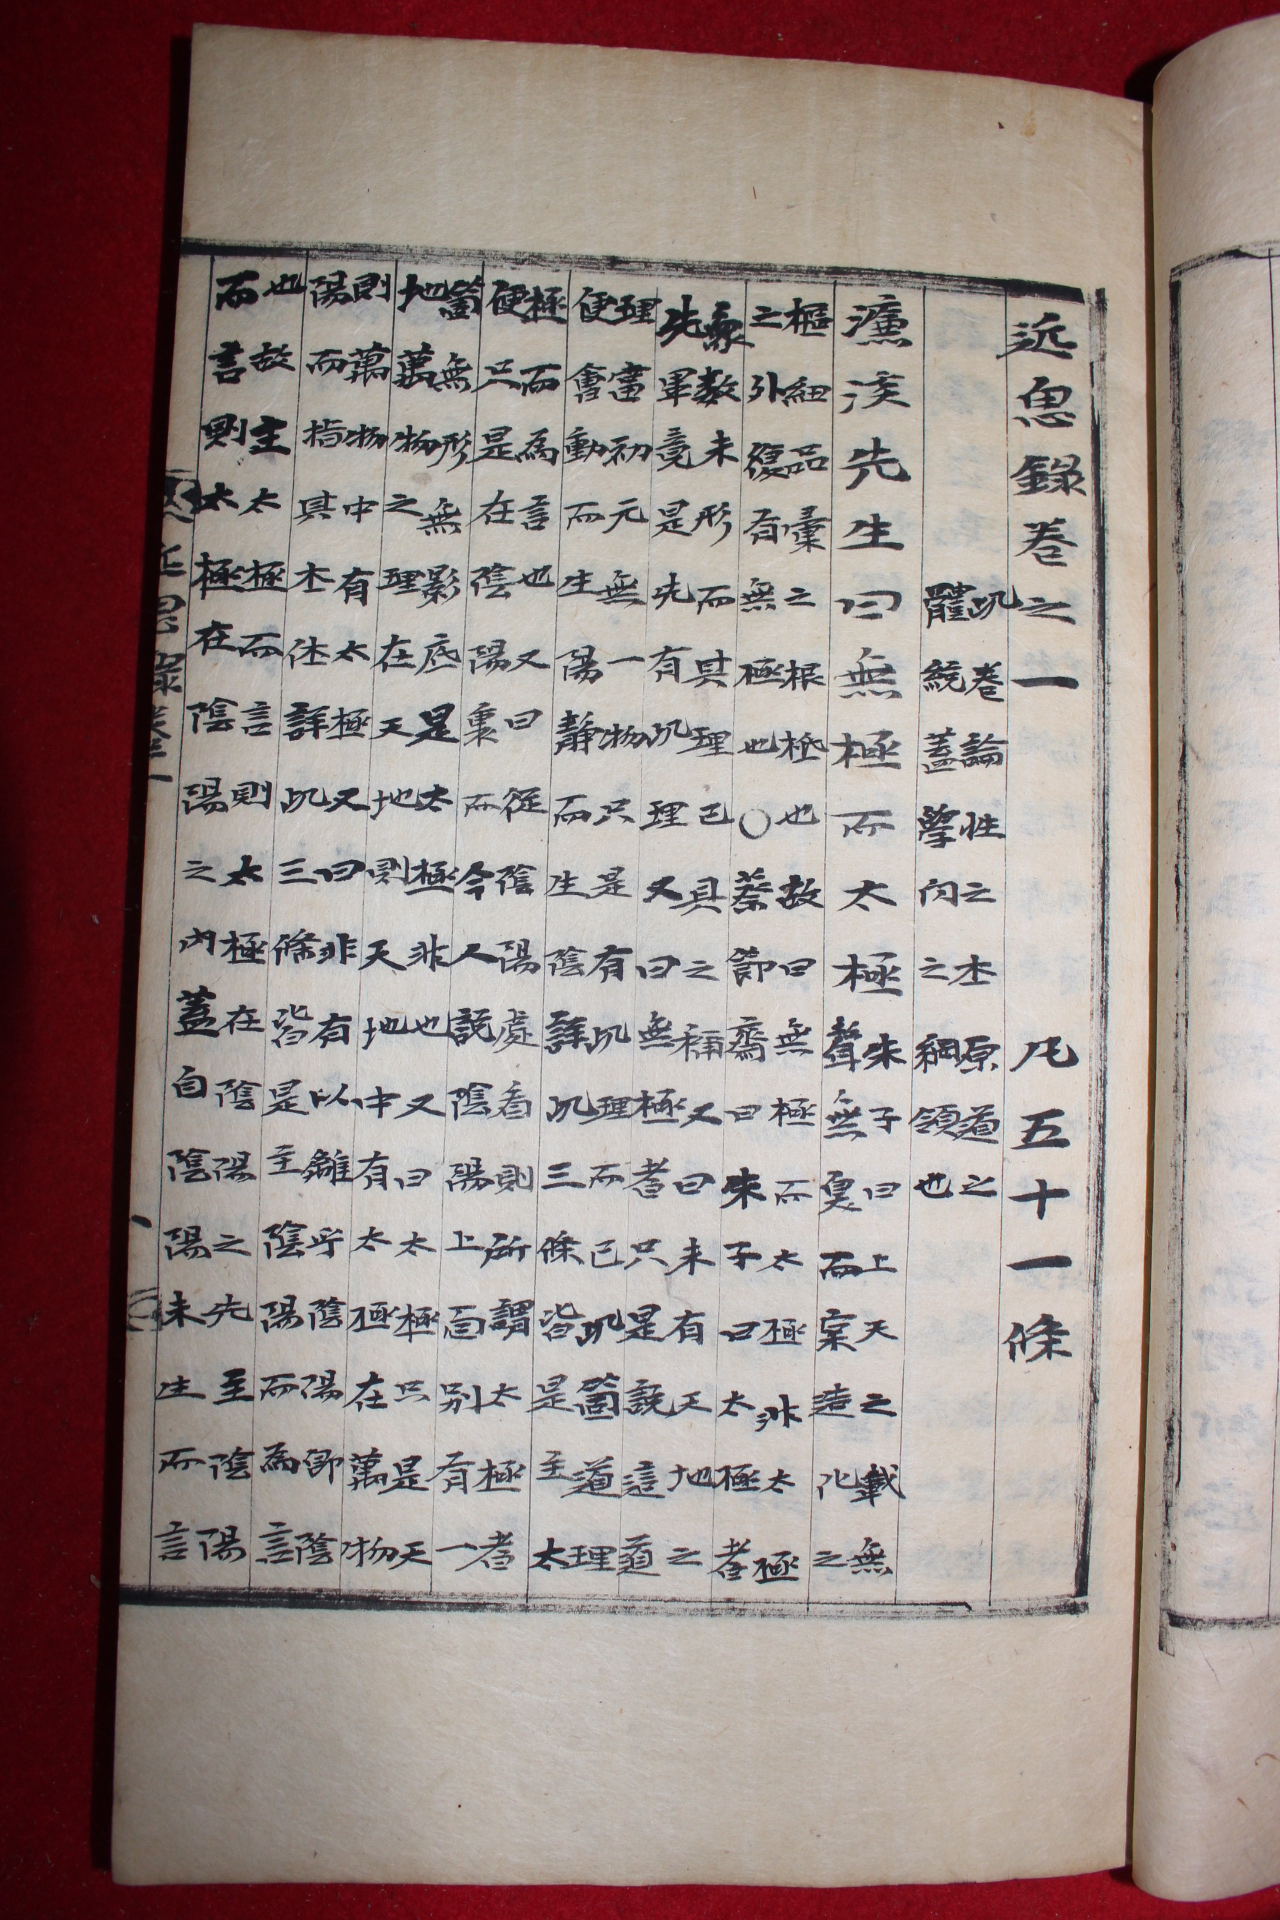 近思錄卷之一 凡五十一條
此卷論性之本原道之
體統蓋學问之綱領也
濂溪先生曰無極而太極
朱子曰上天之載無
聲無臭而實造化之
樞紐品彙之根柢也故曰無極而太極非太極
之外復有無極也○蔡節齋曰朱子曰太極者
象數未形而其理已具之稱又曰未有天地之
先畢竟是先有此理又曰無極者只是說這道
理當初元無一物只是有此理而已此箇道理
便會動而生陽靜而生陰詳此三條皆是主太
極而為言也又曰從陰陽處看則所謂太極者
便只是在陰陽裏而今人說陰陽上面別有一
箇無形無影底是太極非也又曰太極只是天
地萬物之理在天地則天地中有太極在萬物
則萬物中有太極又曰非有以離乎陰陽卽陰
陽而指其本体詳此三條皆是主陰陽而為言
也故主太極而言則太極在陰陽之先主陰陽
而言則太極在陰陽之內蓋自陰陽未生而言